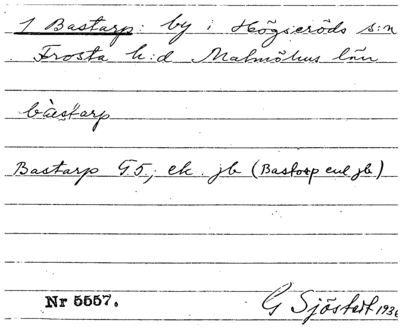 1 Bastarp: by i Högseröds s:n
Frosta h:d Malmöhus län
bàestarp
Bastarp G.5; ek. jb (Bastorp enl jb)
Nr 5557. G Sjöstedt 1936